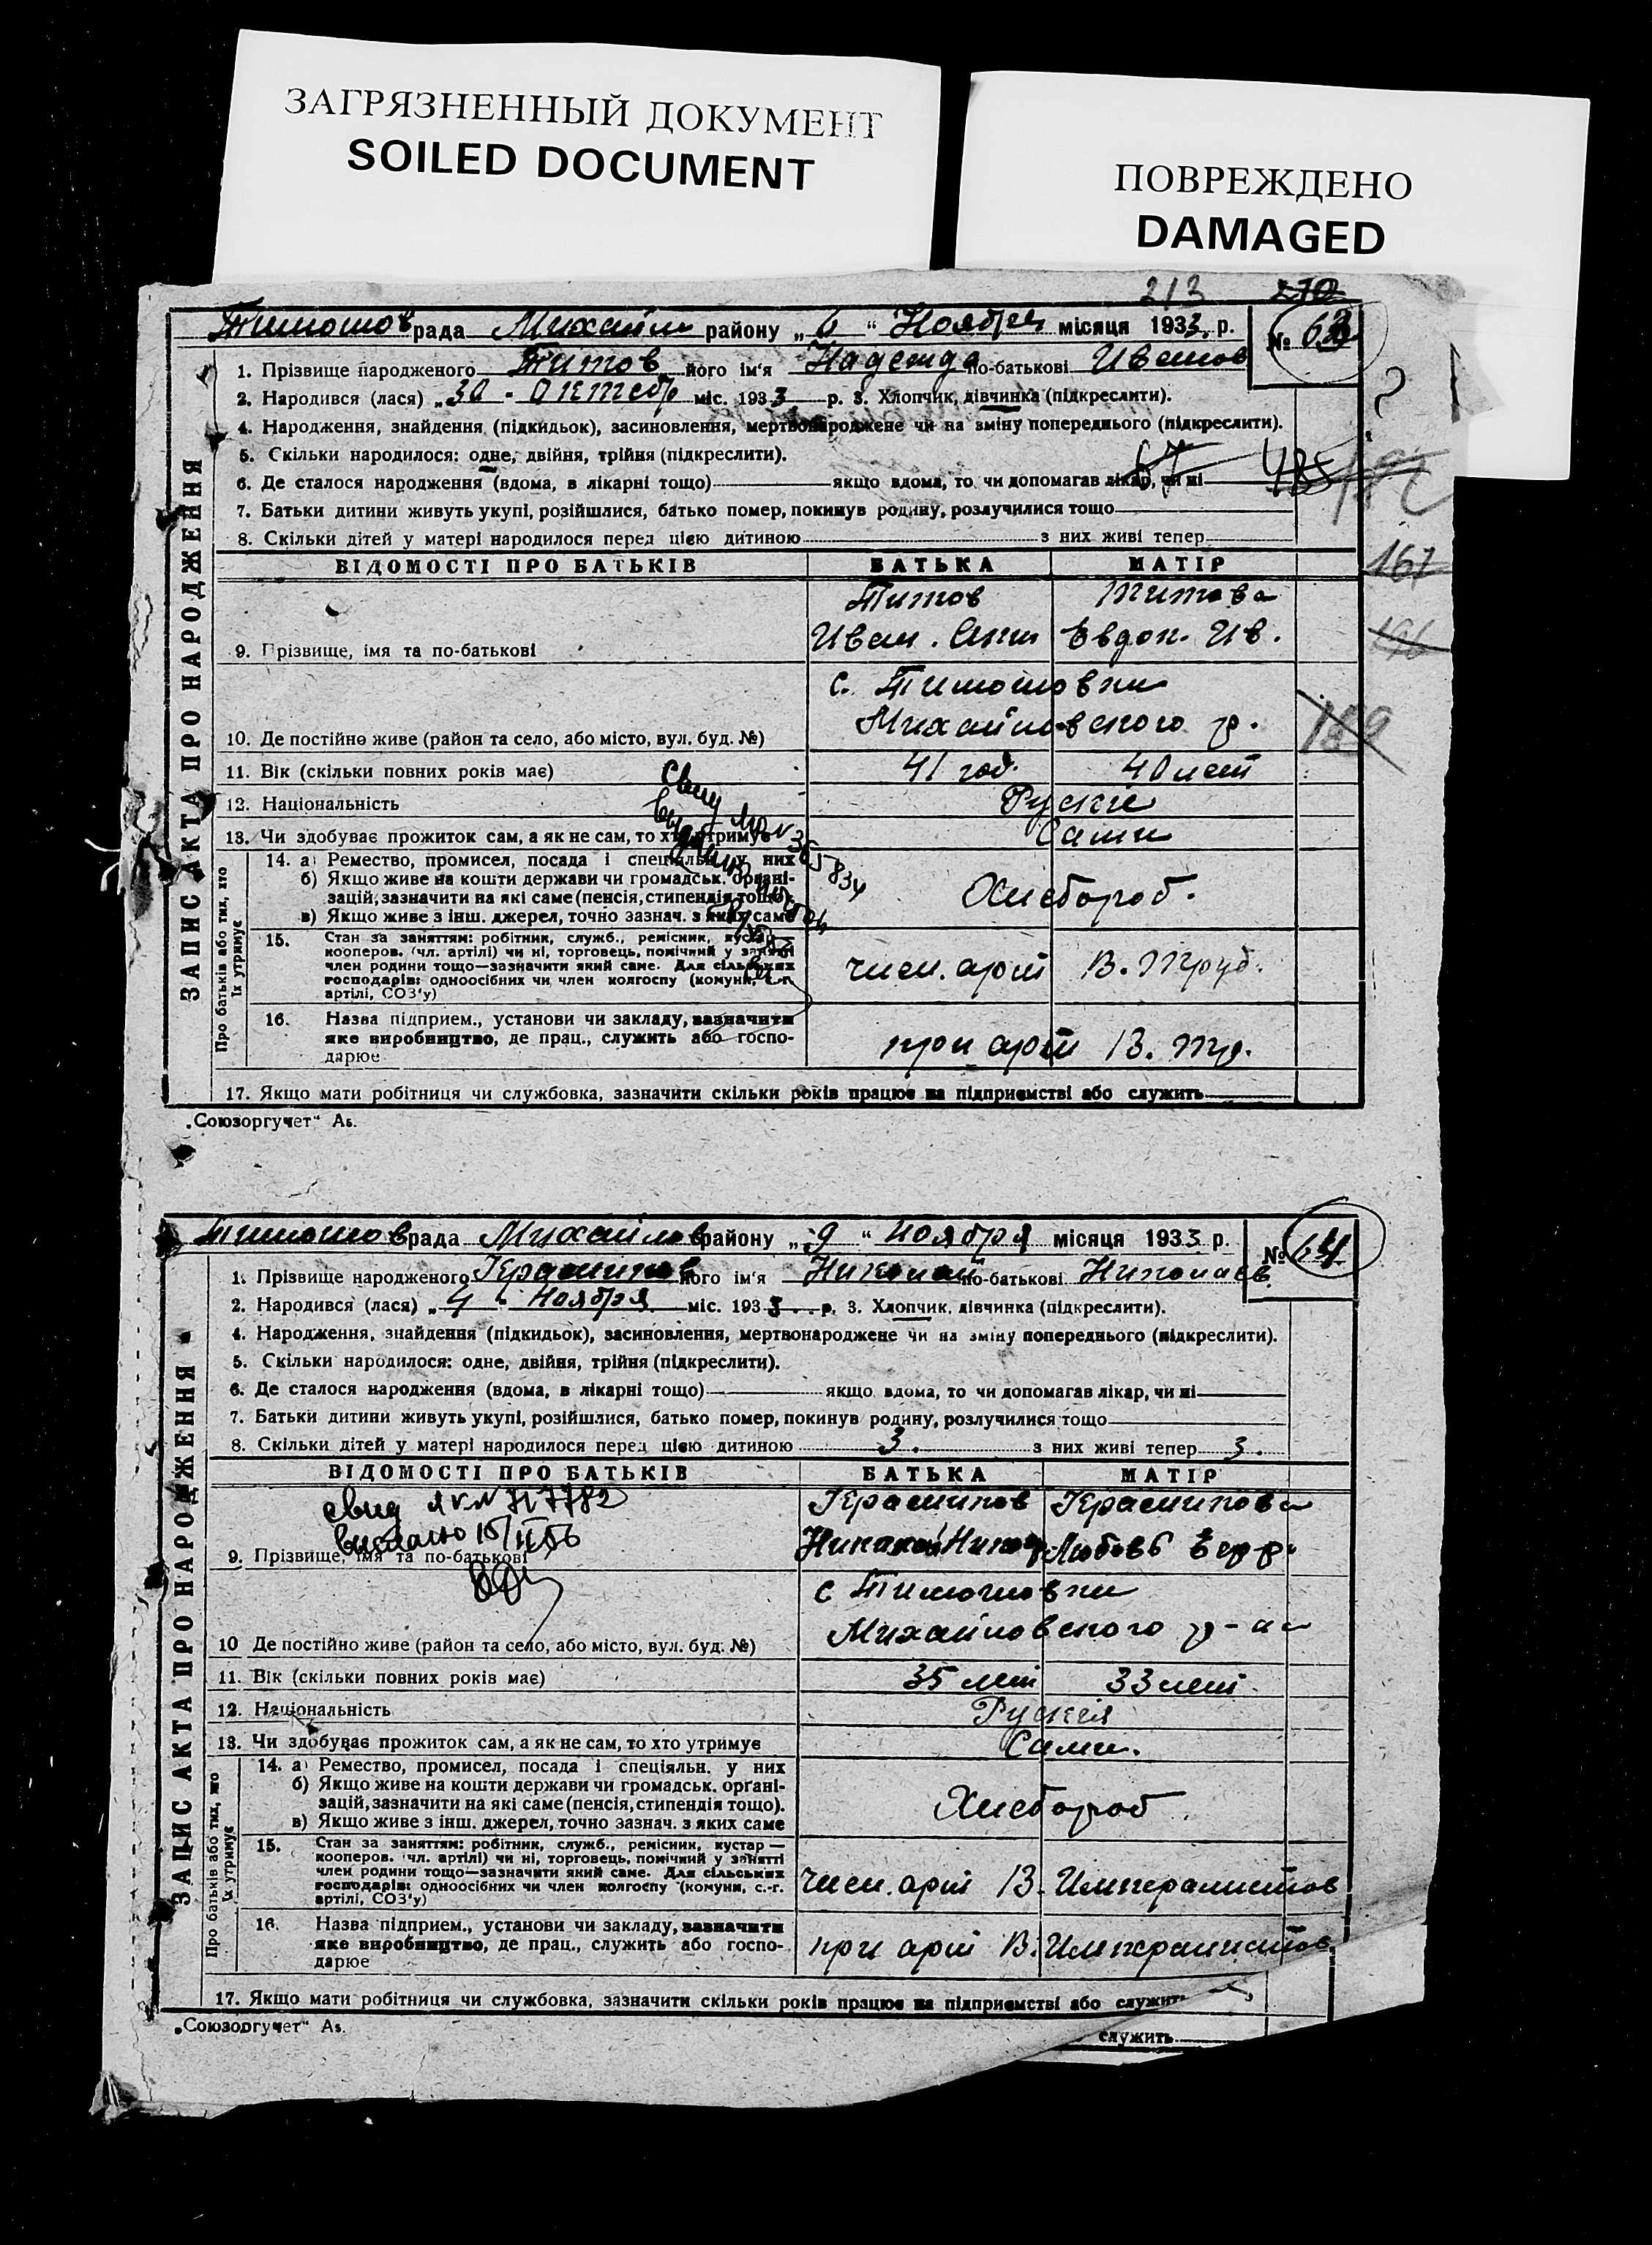 ЗАГРЯЗНЕННЫЙ ДОКУМЕНТ
SOILED DOCUMENT
ПОВРЕЖДЕНО
DAMAGED
213 270
Тимошов рада Михайл району „6“ Ноября місяця 1933 р. № 63
ЗАПИС АКТА ПРО НАРОДЖЕННЯ
1. Прізвище народженого Титов його ім'я Надежда по-батькові Иванов
2. Народився (лася) „30 - Октебр міс. 1933 р. 3. Хлопчик, дівчинка (підкреслити).
4. Народження, знайдення (підкидьок), засиновлення, мертвонароджене чи на зміну попереднього (підкреслити).
5. Скільки народилося: одне, двійня, трійня (підкреслити).
6. Де сталося народження (вдома, в лікарні тощо) якщо вдома, то чи допомагав лікар, чи ні
7. Батьки дитини живуть укупі, розійшлися, батько помер, покинув родину, розлучилися тощо
8. Скільки дітей у матері народилося перед цією дитиною з них живі тепер
167
ВІДОМОСТІ ПРО БАТЬКІВ БАТЬКА МАТІР
Титов Титова
9. Прізвище, імя та по-батькові Иван. Евдок. Ив.
с. Тимошовки
10. Де постійно живе (район та село, або місто, вул. буд. №) Михайловского р.
11. Вік (скільки повних років має) 41 год. 40 лет
12. Національність Руские
13. Чи здобуває прожиток сам, а як не сам, то хто утримує Сами
Про батьків або тих, хто їх утримує
14. а) Ремество, промисел, посада і спеціяльн. у них
б) Якщо живе на кошти держави чи громадськ. органі-
зацій, зазначити на які саме (пенсія, стипендія тощо). Хлебороб.
в) Якщо живе з інш. джерел, точно зазнач. з яких саме
15. Стан за заняттям: робітник, служб., ремісник, кустар—
кооперов. (чл. артілі) чи ні, торговець, помічний у занятті
член родини тощо—зазначити який саме. Для сільських член. арт В. Труд.
господарів: одноосібних чи член колгоспу (комуни, с.-г.
артілі, СОЗ'у)
16. Назва підприєм., установи чи закладу, зазначити
яке виробництво, де прац., служить або госпо- при арт В. Тр.
дарює
17. Якщо мати робітниця чи службовка, зазначити скільки років працює на підприємстві або служить
„Союзоргучет“ А5.
Тимошов рада Михайлов району „9“ ноября місяця 1933 р. № 64
ЗАПИС АКТА ПРО НАРОДЖЕННЯ
1. Прізвище народженого Герасимов його ім'я Николай по-батькові Николаев
2. Народився (лася) „4 - Ноября міс. 1933 р. 3. Хлопчик, дівчинка (підкреслити).
4. Народження, знайдення (підкидьок), засиновлення, мертвонароджене чи на зміну попереднього (підкреслити).
5. Скільки народилося: одне, двійня, трійня (підкреслити).
6. Де сталося народження (вдома, в лікарні тощо) якщо вдома, то чи допомагав лікар, чи ні
7. Батьки дитини живуть укупі, розійшлися, батько помер, покинув родину, розлучилися тощо
8. Скільки дітей у матері народилося перед цією дитиною 3. з них живі тепер 3.
ВІДОМОСТІ ПРО БАТЬКІВ БАТЬКА МАТІР
Герасимов Герасимова
9. Прізвище, імя та по-батькові Николай Любовь
с Тимошовки
10 Де постійно живе (район та село, або місто, вул. буд. №) Михайловского р-на
11. Вік (скільки повних років має) 35 лет 33 лет
12. Національність Руския
13. Чи здобуває прожиток сам, а як не сам, то хто утримує Сами.
Про батьків або тих, що їх утримує
14. а) Ремество, промисел, посада і спеціяльн. у них
б) Якщо живе на кошти держави чи громадськ. органі-
зацій, зазначити на які саме (пенсія, стипендія тощо). Хлебороб
в) Якщо живе з інш. джерел, точно зазнач. з яких саме
15. Стан за заняттям: робітник, служб., ремісник, кустар—
кооперов. (чл. артілі) чи ні, торговець, помічний у занятті
член родини тощо—зазначити який саме. Для сільських
господарів: одноосібних чи член колгоспу (комуни, с.-г. член. арт В. Империалистов
артілі, СОЗ'у)
16. Назва підприєм., установи чи закладу, зазначити
яке виробництво, де прац., служить або госпо- при арт В. Империалистов
дарює
17. Якщо мати робітниця чи службовка, зазначити скільки років працює на підприємстві або служить
„Союзоргучет“ А5.
служить